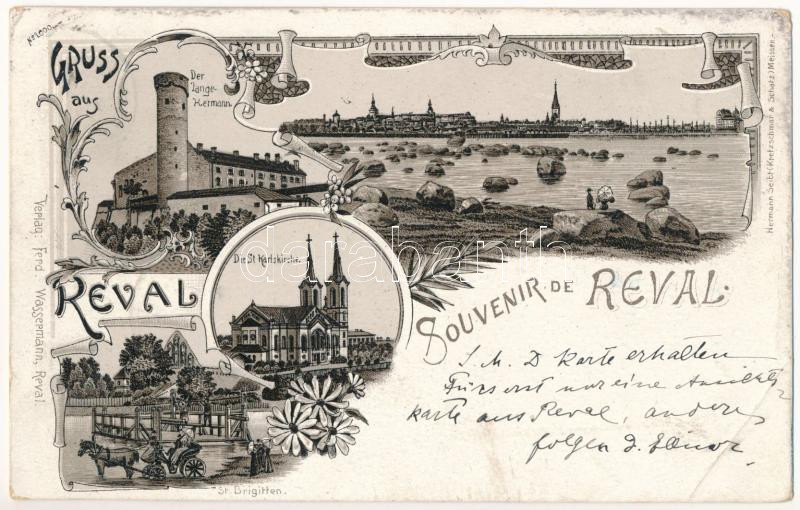 No 1000.
GRUSS
aus
REVAL
Der
Lange-
Hermann.
Hermann Seibt (Kretzschmar & Schatz) Meissen.
Verlag: Ferd. Wassermann, Reval.
Die St. Karlskirche.
SOUVENIR DE REVAL.
St. Brigitten.
darabanth
Karte erhalten
nur eine Ansichts-
karte aus Reval, andere
folgen